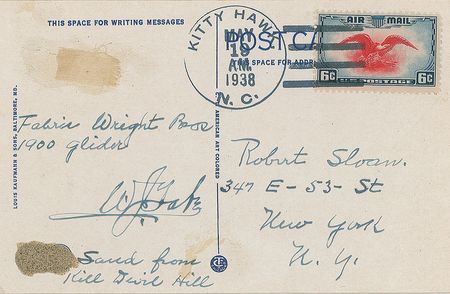 THIS SPACE FOR WRITING MESSAGES
KITTY HAWK
MAY
19
AM
1938
N. C.
POST CA
SPACE FOR ADDR
AIR MAIL
6c U.S. POSTAGE 6c
LOUIS KAUFMANN & SONS, BALTIMORE, MD.
AMERICAN ART COLORED
Fabric Wright Bros
1900 glider
Sand from
Kill Devil Hill
Robert Sloan.
347 E - 53 - St
New York
N. Y.